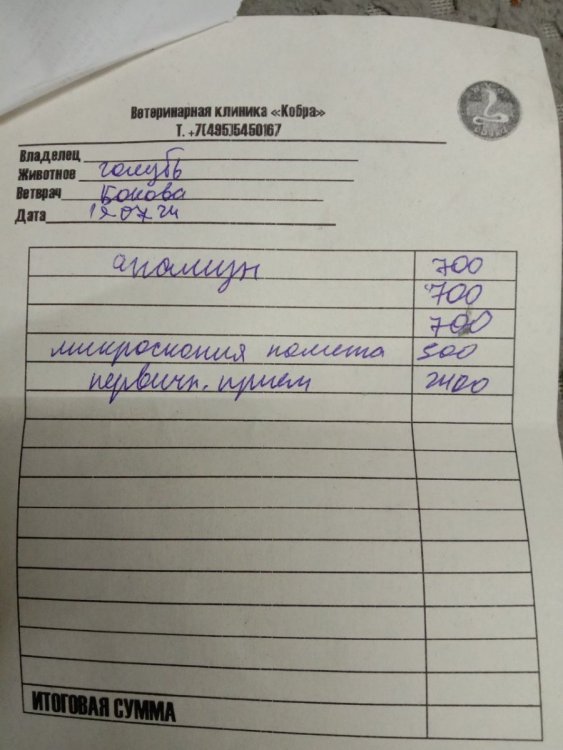 Ветеринарная клиника «Кобра»
Т. +7(495)5450167
Владелец
Животное голубь
Ветврач Бокова
Дата 19 07 24
700
700
700
микроскопия помета 500
первичн. прием 2400
ИТОГОВАЯ СУММА